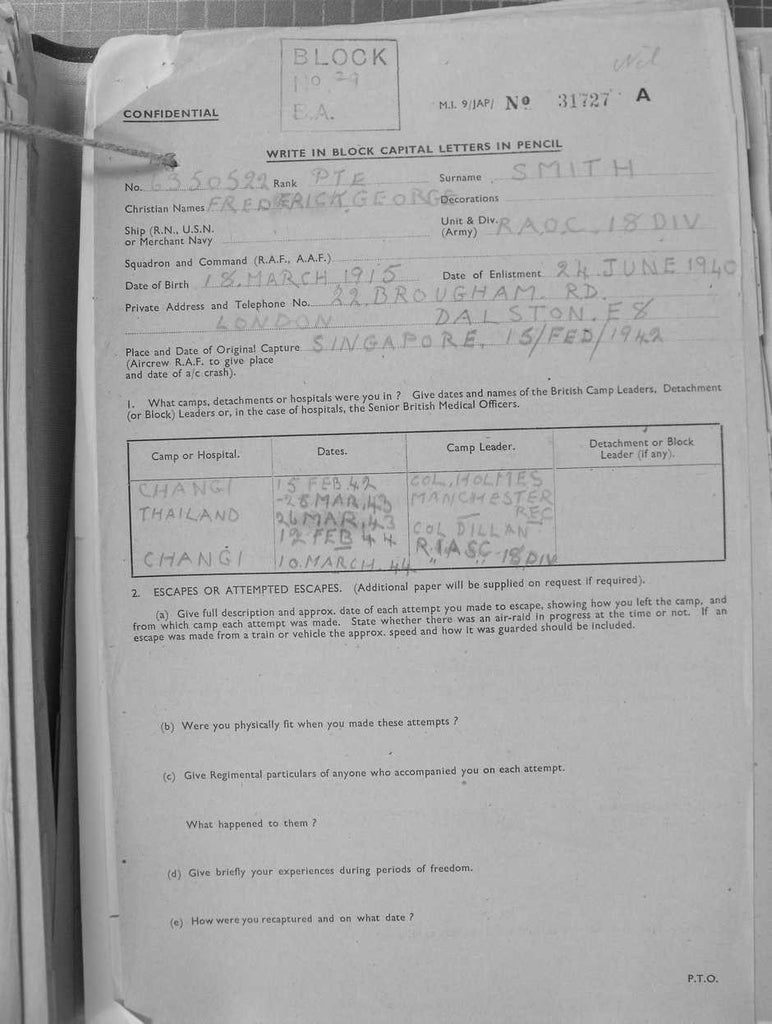 BLOCK
No 29
B.A.
Nil
CONFIDENTIAL
M.I. 9/JAP/ No 31727 A
WRITE IN BLOCK CAPITAL LETTERS IN PENCIL
No. 6350522 Rank PTE Surname SMITH
Christian Names FREDERICK GEORGE Decorations
Ship (R.N., U.S.N. or Merchant Navy
Unit & Div. (Army) RAOC. 18 DIV
Squadron and Command (R.A.F., A.A.F.)
Date of Birth 18. MARCH 1915 Date of Enlistment 24 JUNE 1940
Private Address and Telephone No. 22, BROUGHAM. RD.
LONDON DALSTON. E8
Place and Date of Original Capture SINGAPORE, 15/FED/1942
(Aircrew R.A.F. to give place
and date of a/c crash).
1. What camps, detachments or hospitals were you in ? Give dates and names of the British Camp Leaders, Detachment
(or Block) Leaders or, in the case of hospitals, the Senior British Medical Officers.
Camp or Hospital. Dates. Camp Leader. Detachment or Block Leader (if any).
CHANGI 15 FEB 42 COL, HOLMES
-28 MAR, 43 MANCHESTER
THAILAND 26 MAR, 43 REC
12 FEB 44 COL DILLAN
CHANGI 10. MARCH. 44 R.IASC-18 DIV
2. ESCAPES OR ATTEMPTED ESCAPES. (Additional paper will be supplied on request if required).
(a) Give full description and approx. date of each attempt you made to escape, showing how you left the camp, and
from which camp each attempt was made. State whether there was an air-raid in progress at the time or not. If an
escape was made from a train or vehicle the approx. speed and how it was guarded should be included.
(b) Were you physically fit when you made these attempts ?
(c) Give Regimental particulars of anyone who accompanied you on each attempt.
What happened to them ?
(d) Give briefly your experiences during periods of freedom.
(e) How were you recaptured and on what date ?
P.T.O.